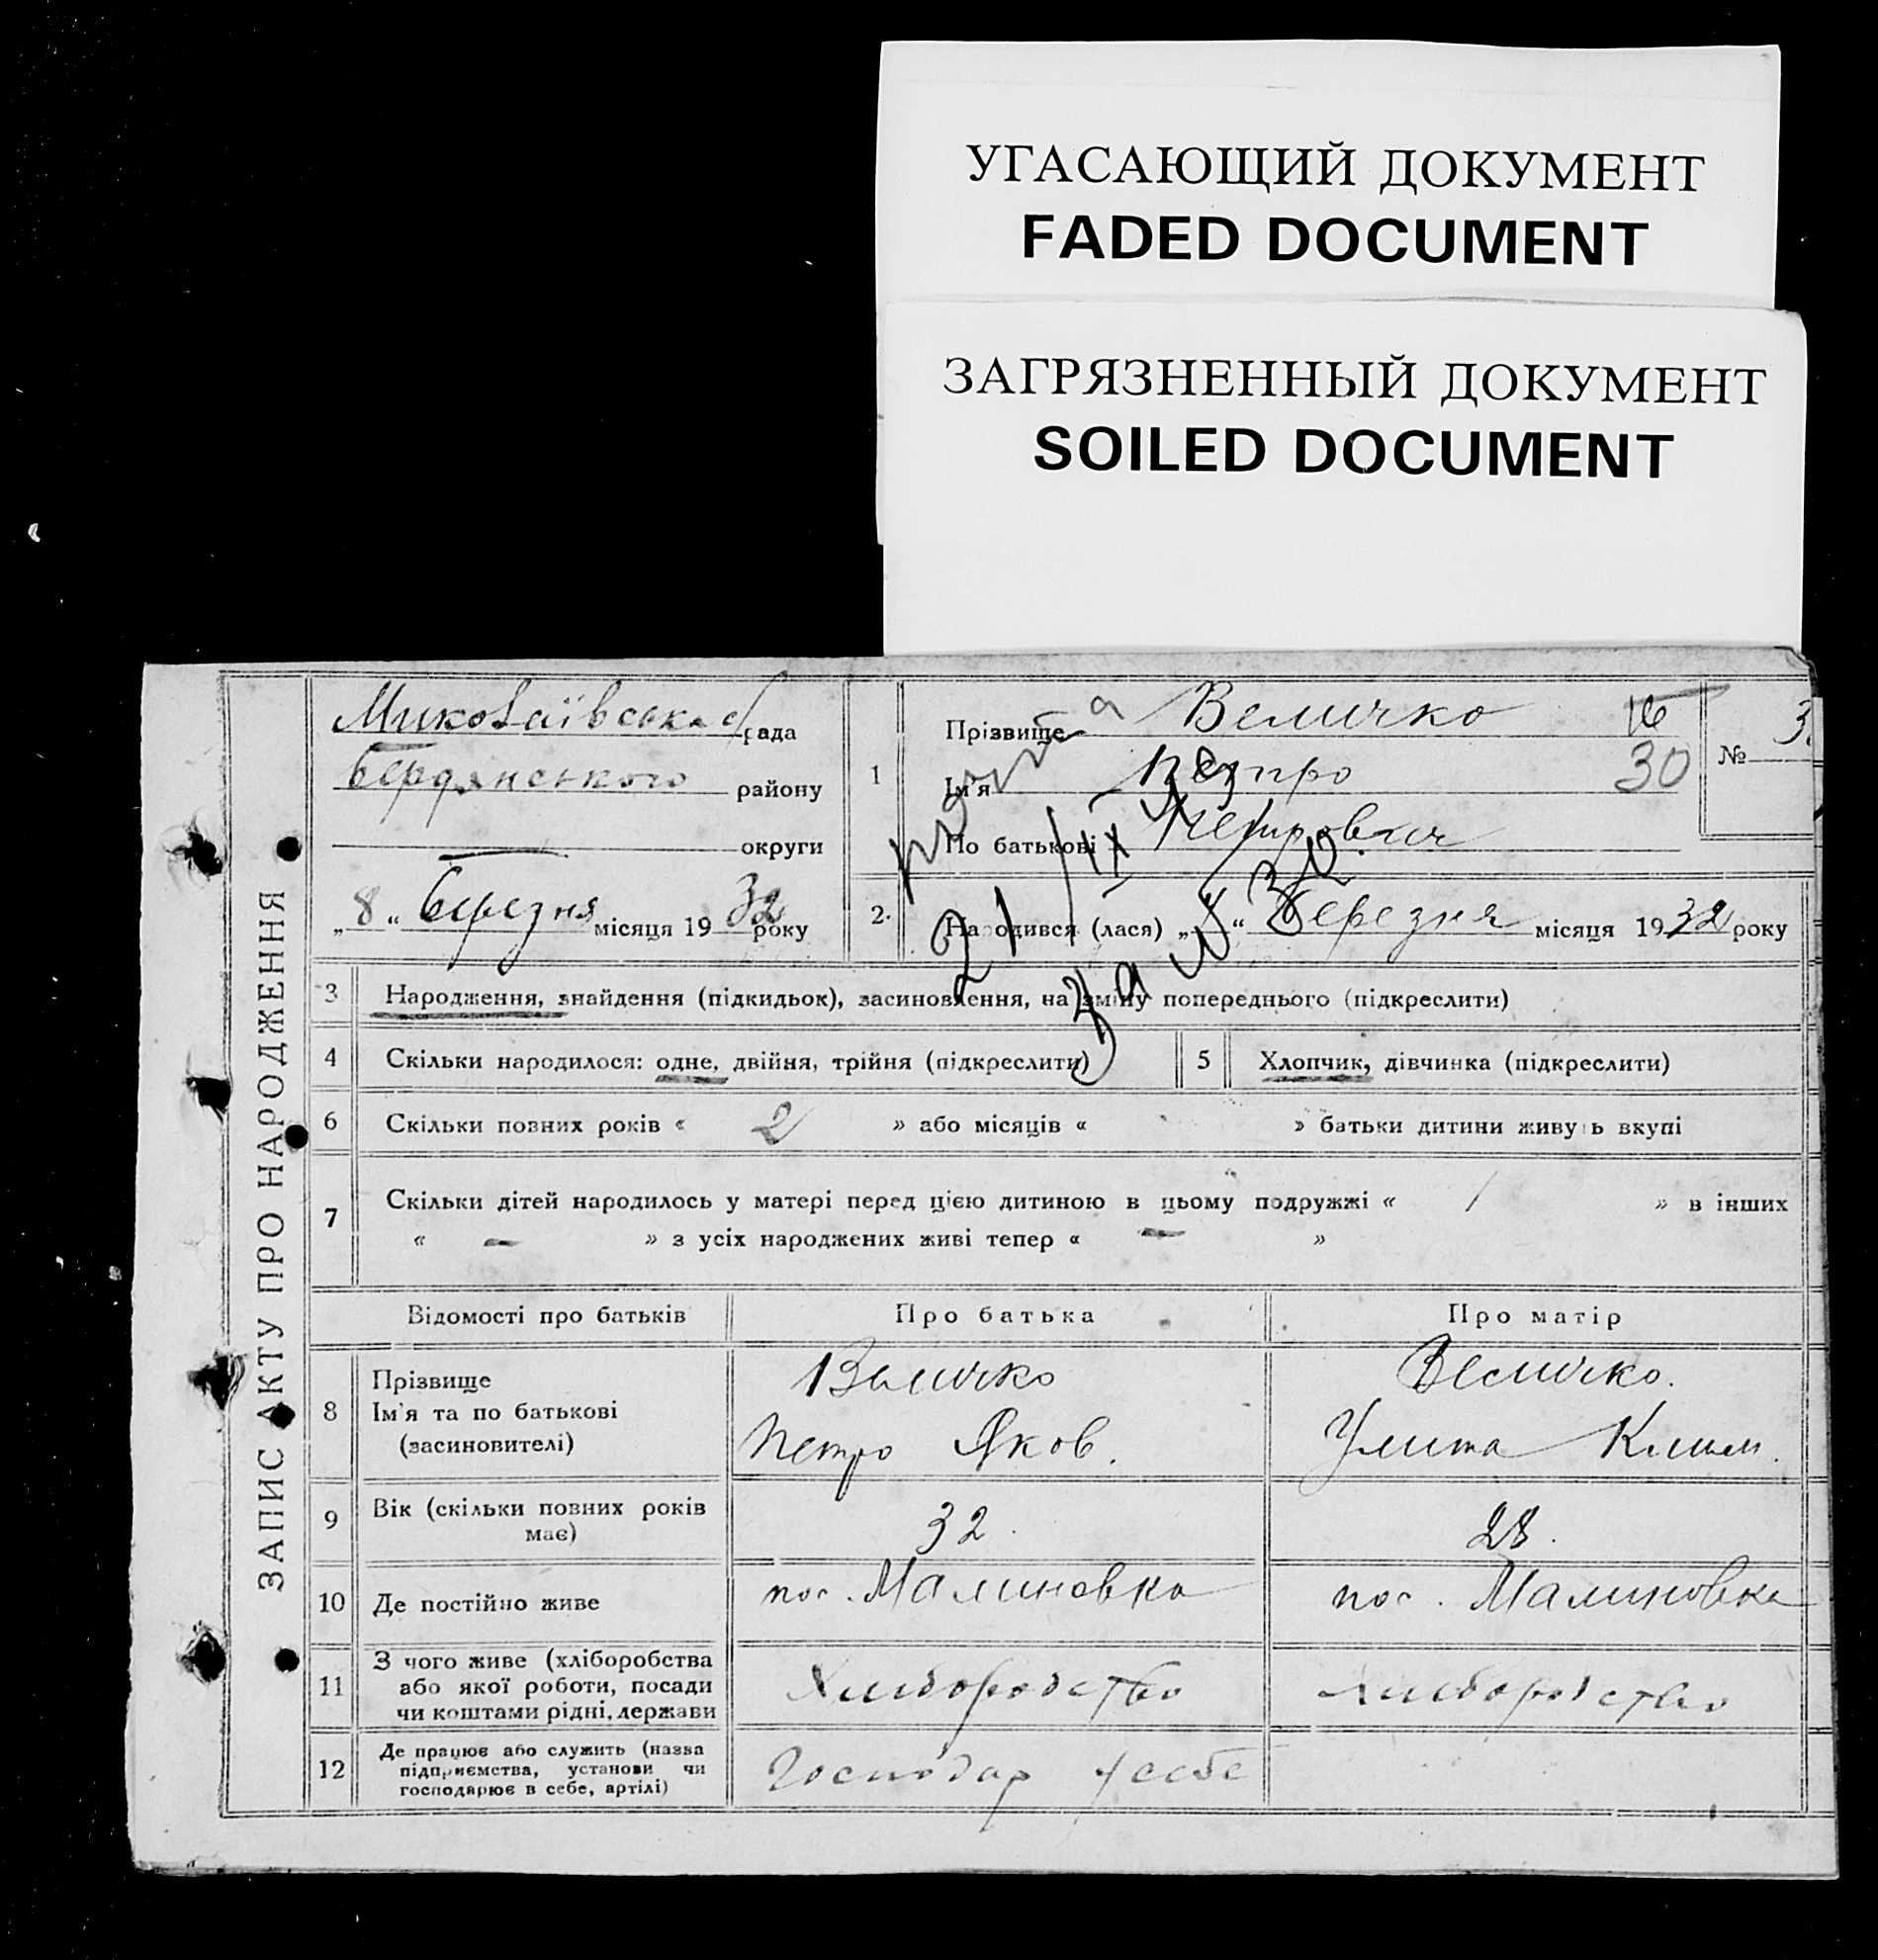 УГАСАЮЩИЙ ДОКУМЕНТ
FADED DOCUMENT
ЗАГРЯЗНЕННЫЙ ДОКУМЕНТ
SOILED DOCUMENT
ЗАПИС АКТУ ПРО НАРОДЖЕННЯ
Миколаївська с/рада
Бердянського району
— округи
„8“ Березня місяця 1932 року
1
Прізвище Величко
Ім'я Петро
По батькові Петрович
16
30
№ 3
2. Народився (лася) „ “ Березня місяця 1932 року
21/IX
за № 30
3 Народження, знайдення (підкидьок), засиновлення, на зміну попереднього (підкреслити)
4 Скільки народилося: одне, двійня, трійня (підкреслити)
5 Хлопчик, дівчинка (підкреслити)
6 Скільки повних років « 2 » або місяців « » батьки дитини живуть вкупі
7 Скільки дітей народилось у матері перед цією дитиною в цьому подружжі « 1 » в інших
« — » з усіх народжених живі тепер « — »
Відомості про батьків Про батька Про матір
8 Прізвище
Ім'я та по батькові
(засиновителі)
Величко
Петро Яков.
Величко.
Улита Клим.
9 Вік (скільки повних років
має)
32.
28.
10 Де постійно живе
пос. Малиновка
пос. Малиновка
11 З чого живе (хліборобства
або якої роботи, посади
чи коштами рідні, держави
Хліборобство
Хліборобство
12 Де працює або служить (назва
підприємства, установи чи
господарює в себе, артілі)
Господар у себе